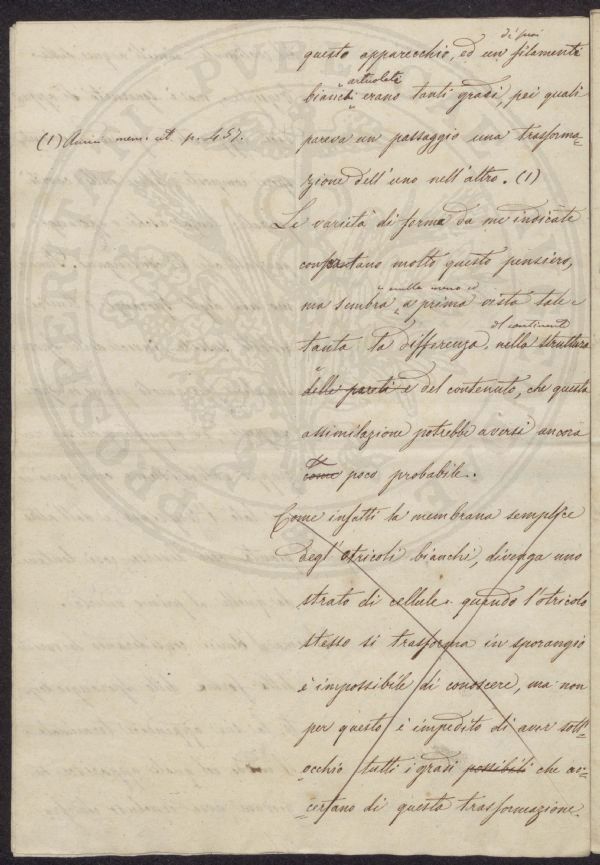 di suoi
questo apparecchio, ed un filamenti
artuolati
bianchi erano tanti gradi, pei quali
(1) mem. cit. p. 457.
pareva un passaggio una trasforma-
zione dell'uno nell'altro. (1)
Le varietà di forma da me indicate
confortano molto questo pensiero,
nulla meno ed
ma sembra a prima vista tale e
del continente
tanta la differenza nella struttura
delle pareti e del contenuto, che questa
assimilazione potrebbe aversi ancora
come poco probabile.
Come infatti la membrana semplice
degl'otricoli bianchi, divenga uno
strato di cellule quando l'otricolo
stesso si trasforma in sporangio
è impossibile di conoscere, ma non
per questo è impedito di aver sott'
occhio tutti i gradi possibili che ac-
certano di questa trasformazione.
PROSPERITATI PVBLICAE